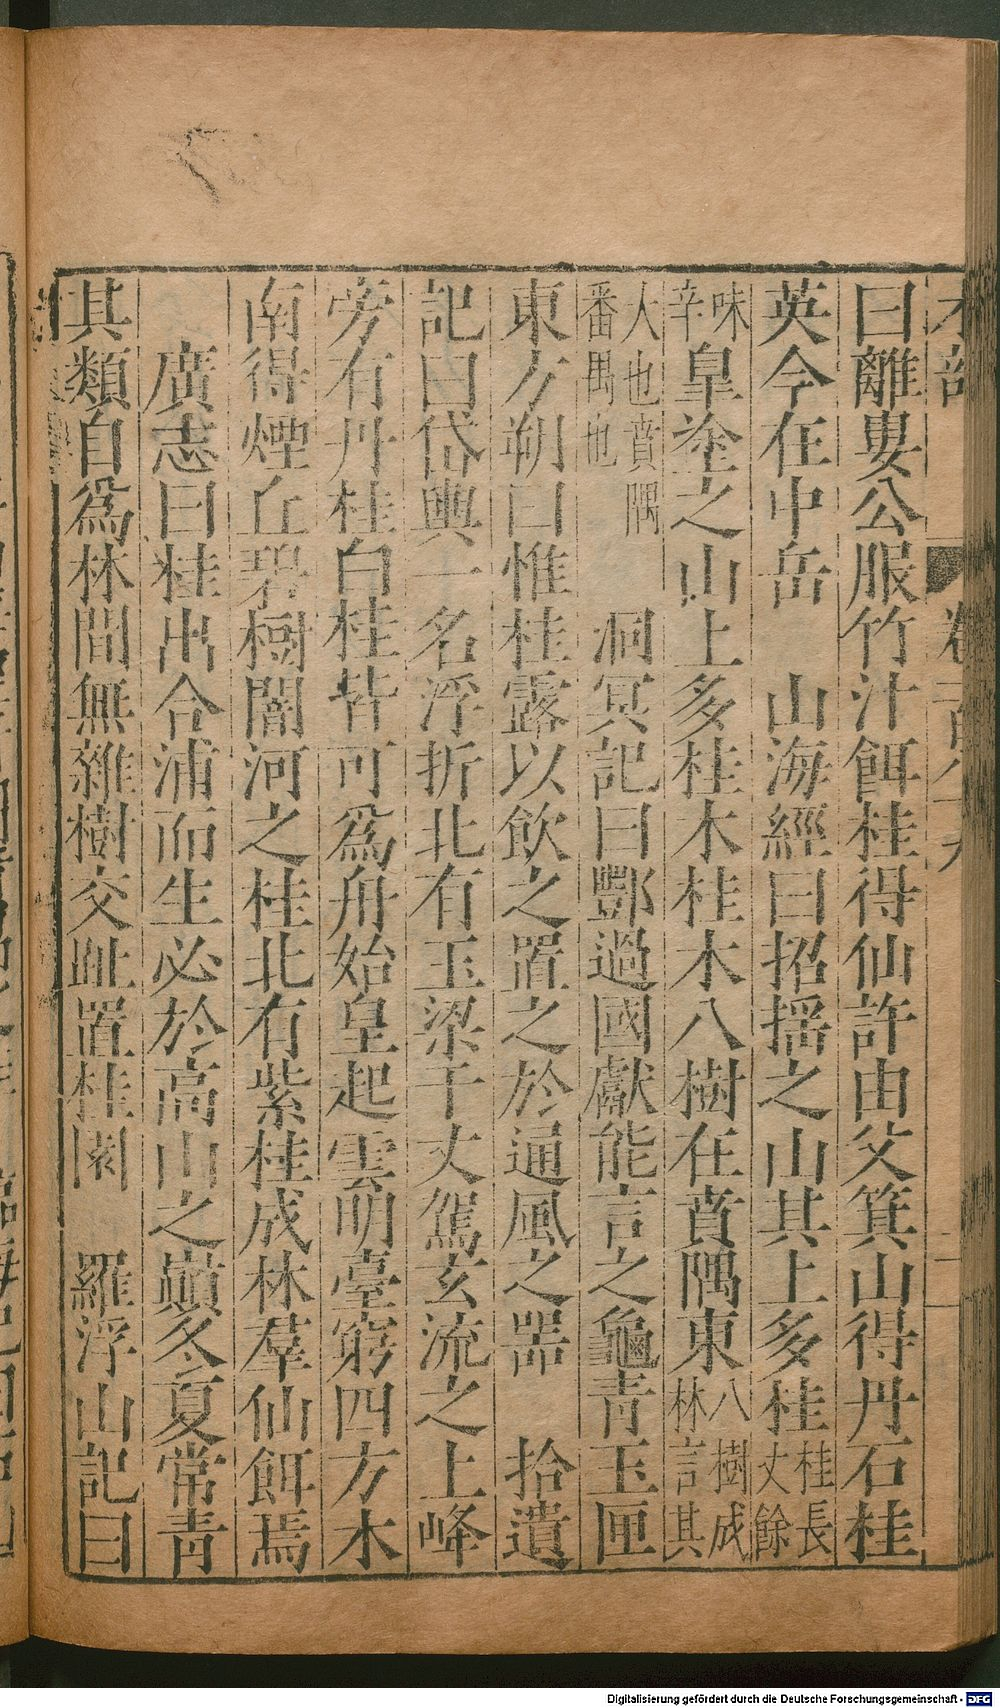 木部 卷一百八十九 二
曰離婁公服竹汁餌桂得仙許由父箕山得丹石桂
英今在中岳 山海經曰招揺之山其上多桂桂長丈餘
味辛皐塗之山上多桂木桂木八樹在賁隅東八樹成林言其
大也賁隅番禺也 洞冥記曰酆過國獻能言之龜青玉匣
東方朔曰惟桂露以飲之置之於通風之器 拾遺
記曰岱輿一名浮折北有玉梁千丈駕玄流之上峰
旁有丹桂白桂皆可爲舟始皇起雲明臺窮四方木
南得煙丘碧樹闇河之桂北有紫桂成林羣仙餌焉
廣志曰桂出合浦而生必於高山之巔冬夏常青
其類自爲林間無雜樹交趾置桂園 羅浮山記曰
Digitalisierung gefördert durch die Deutsche Forschungsgemeinschaft - DFG